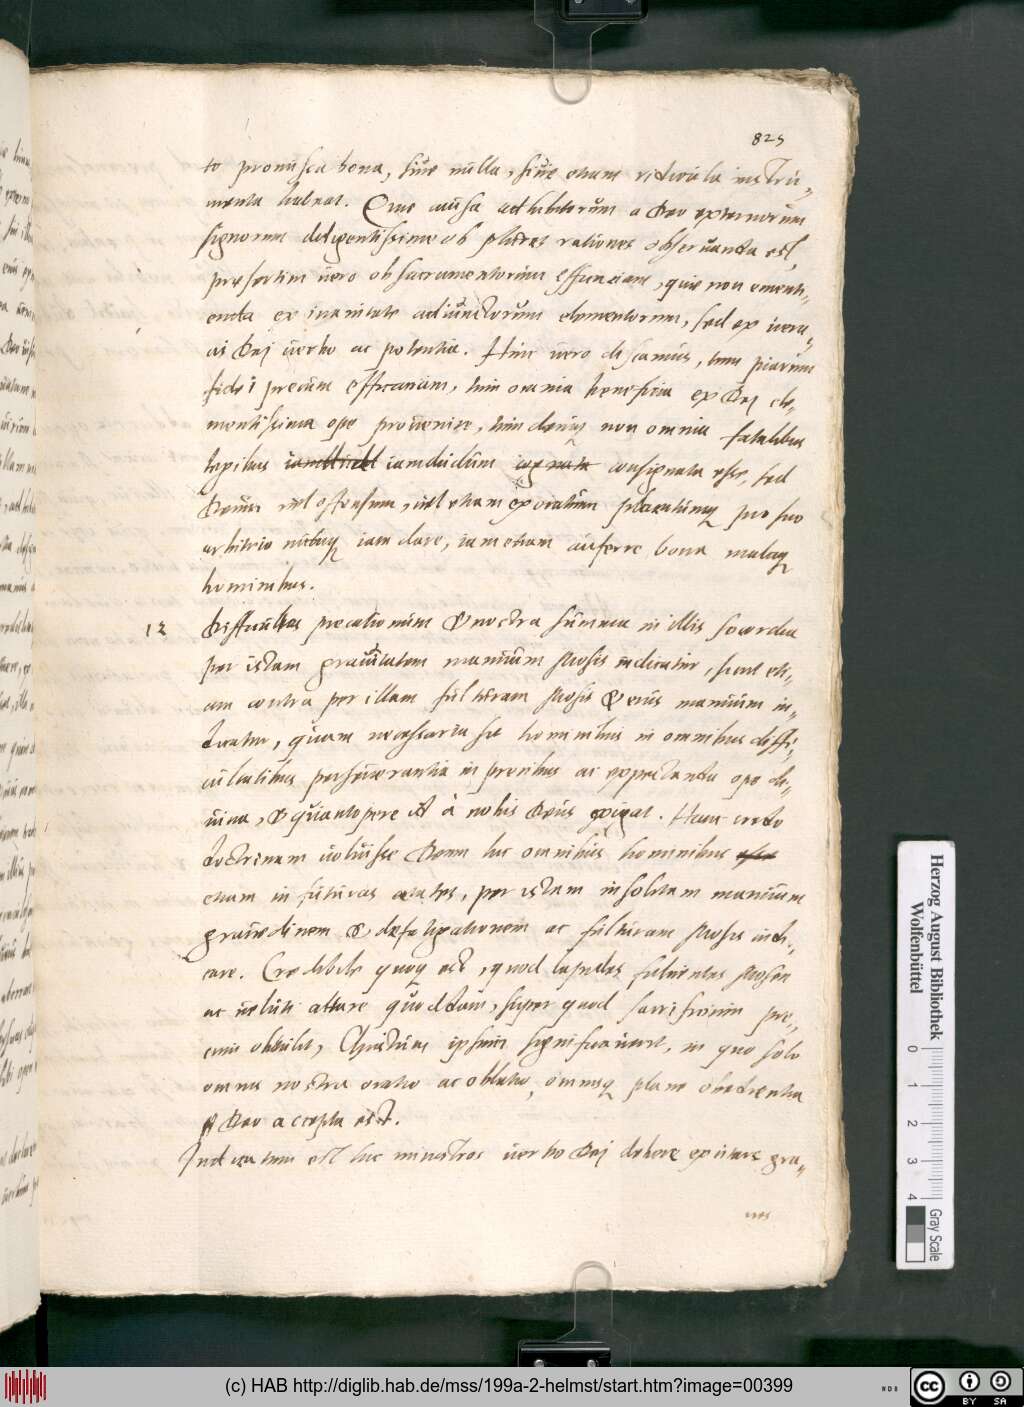 825
to promissa bona, siue nulla, siue etiam ridicula instru-
menta habeat. Que causa adhibitorum a Deo externorum
signorum diligentissime ob plures rationes obseruanda est,
presertim uero ob sacramentorum efficaciam, que non ementi-
enda ex inanitate adiunctorum elementorum, sed ex uera
ac Dei uerbo ac potentia. Hinc uero discamus, tum piarum
fidei precum efficaciam, tum omnia beneficia ex Dei cle-
mentissima ope prouenire, tum deniq non omnia fatalibus
legibus iamdudum consignata esse, sed
Deum uel offensum, uel etiam exoratum placatumq pro suo
arbitrio nutuq iam dare, iam etiam auferre bona malaq
hominibus.
12 Difficultas precationum & nostra summa in illis socordia
per istam grauitatem manuum Mosis indicatur, sicut eti-
am contra per illam fulturam Mosis & eius manuum in-
dicatur, quam necessaria sit hominibus in omnibus diffi-
cultatibus perseuerantia in precibus ac expectanda ope di-
uina, & quantopere id à nobis Deus exigat. Hanc credo
doctrinam uoluisse Deum hic omnibus hominibus
etiam in futuras aetates, per istam insolitam manuum
grauedinem & defatigationem ac fulturam Mosis indi-
care. Credibile quoq est, quod lapides fulcientes Mosen
ac ueluti altare quoddam, super quod sacrificium pre-
cum obtulit, Christum ipsum significauerit, in quo solo
omnis nostra oratio ac oblatio, omnisq plane obedientia
A Deo accepta est.
Indicatum est hic ministros uerbo Dei debere excitare gra-
ues
Herzog August Bibliothek
Wolfenbüttel
0 1 2 3 4
Gray Scale
(c) HAB http://diglib.hab.de/mss/199a-2-helmst/start.htm?image=00399
cc BY SA